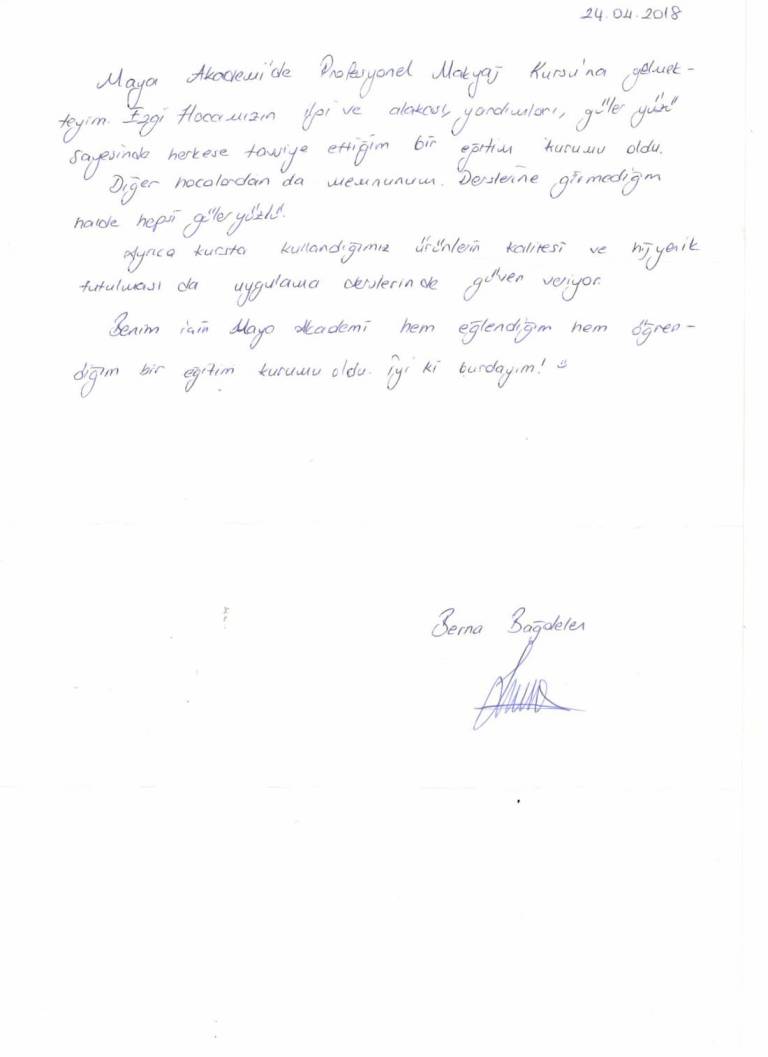 24.04.2018
Maya Akademi'de Profesyonel Makyaj Kursu'na gelmek-
teyim. Ezgi Hocamızın ilgi ve alakası, yardımları, güler yüzü
sayesinde herkese tavsiye ettiğim bir eğitim kurumu oldu.
Diğer hocalardan da memnunum. Derslerine girmediğim
halde hepsi güler yüzlü.
Ayrıca kursta kullandığımız ürünlerin kalitesi ve hijyenik
tutulması da uygulama derslerinde güven veriyor.
Benim için Maya Akademi hem eğlendiğim hem öğren-
diğim bir eğitim kurumu oldu. İyi ki burdayım! ☺
Berna Bağdelen